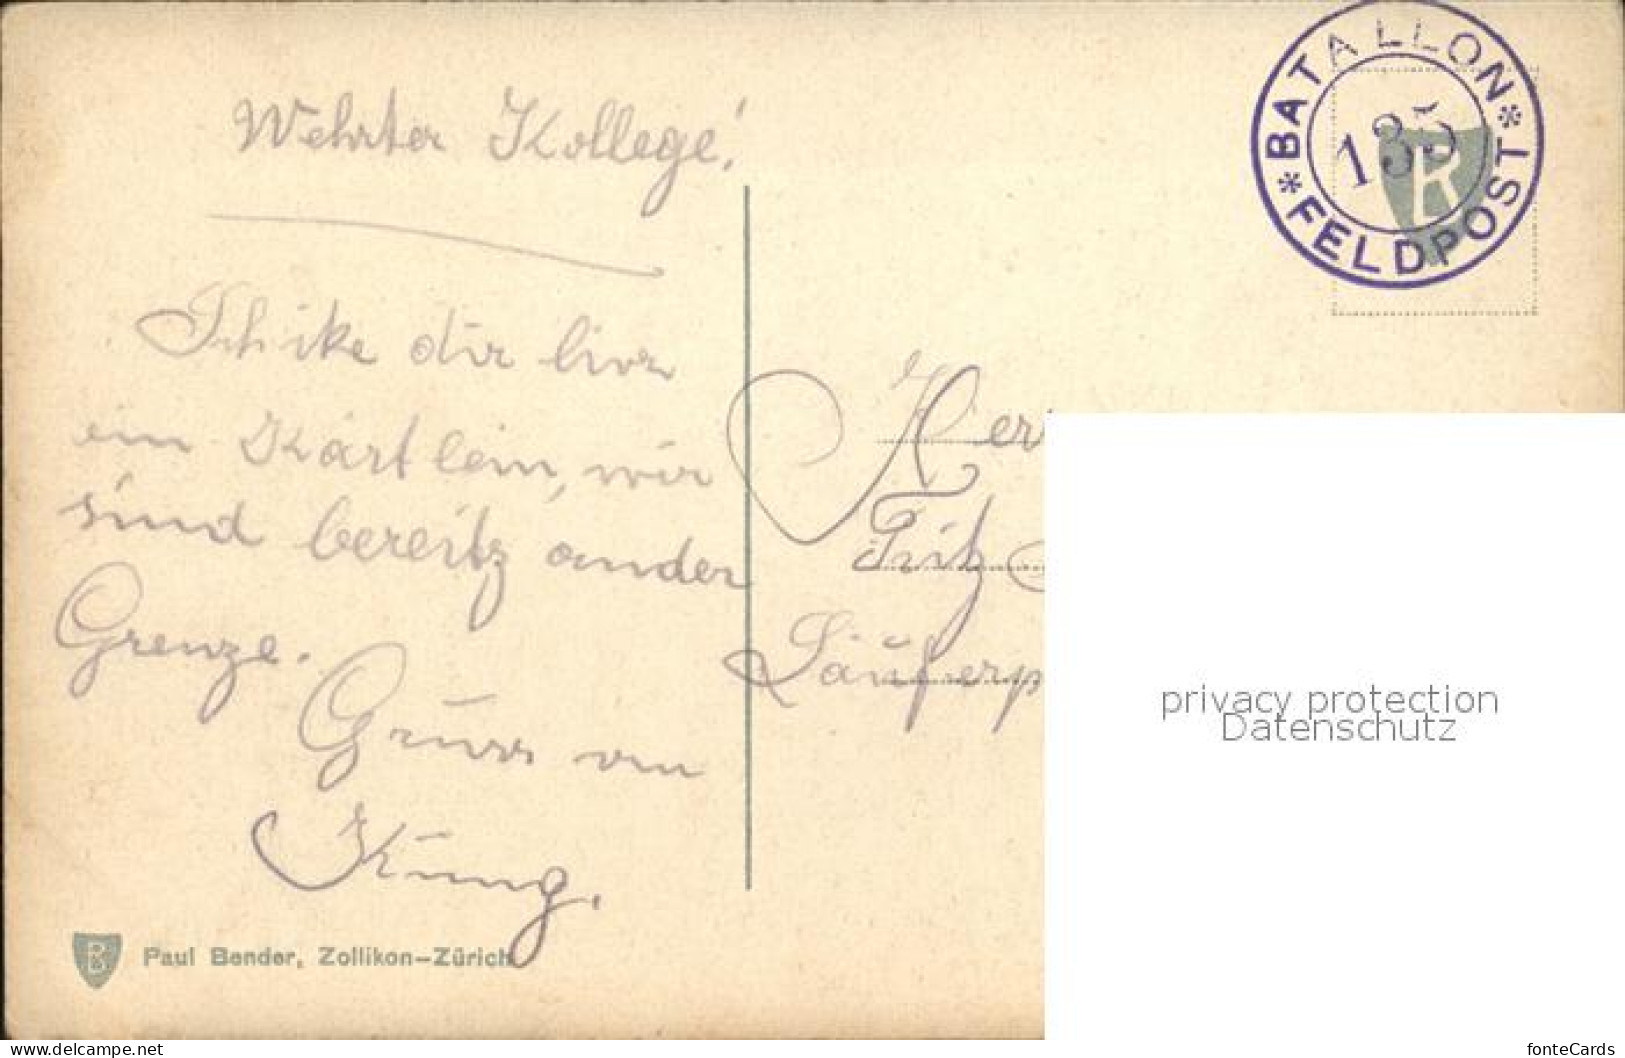 Wehrter Kollege!
Schike dir hier
ein Kärtlein, wir
sind bereitz ander
Grenze.
Gruss von
Küng.
Paul Bender, Zollikon-Zürich
BATALLION
135
FELDPOST
B
Her
Fritz
Säuferp
privacy protection
Datenschutz
www.delcampe.net
fonteCards